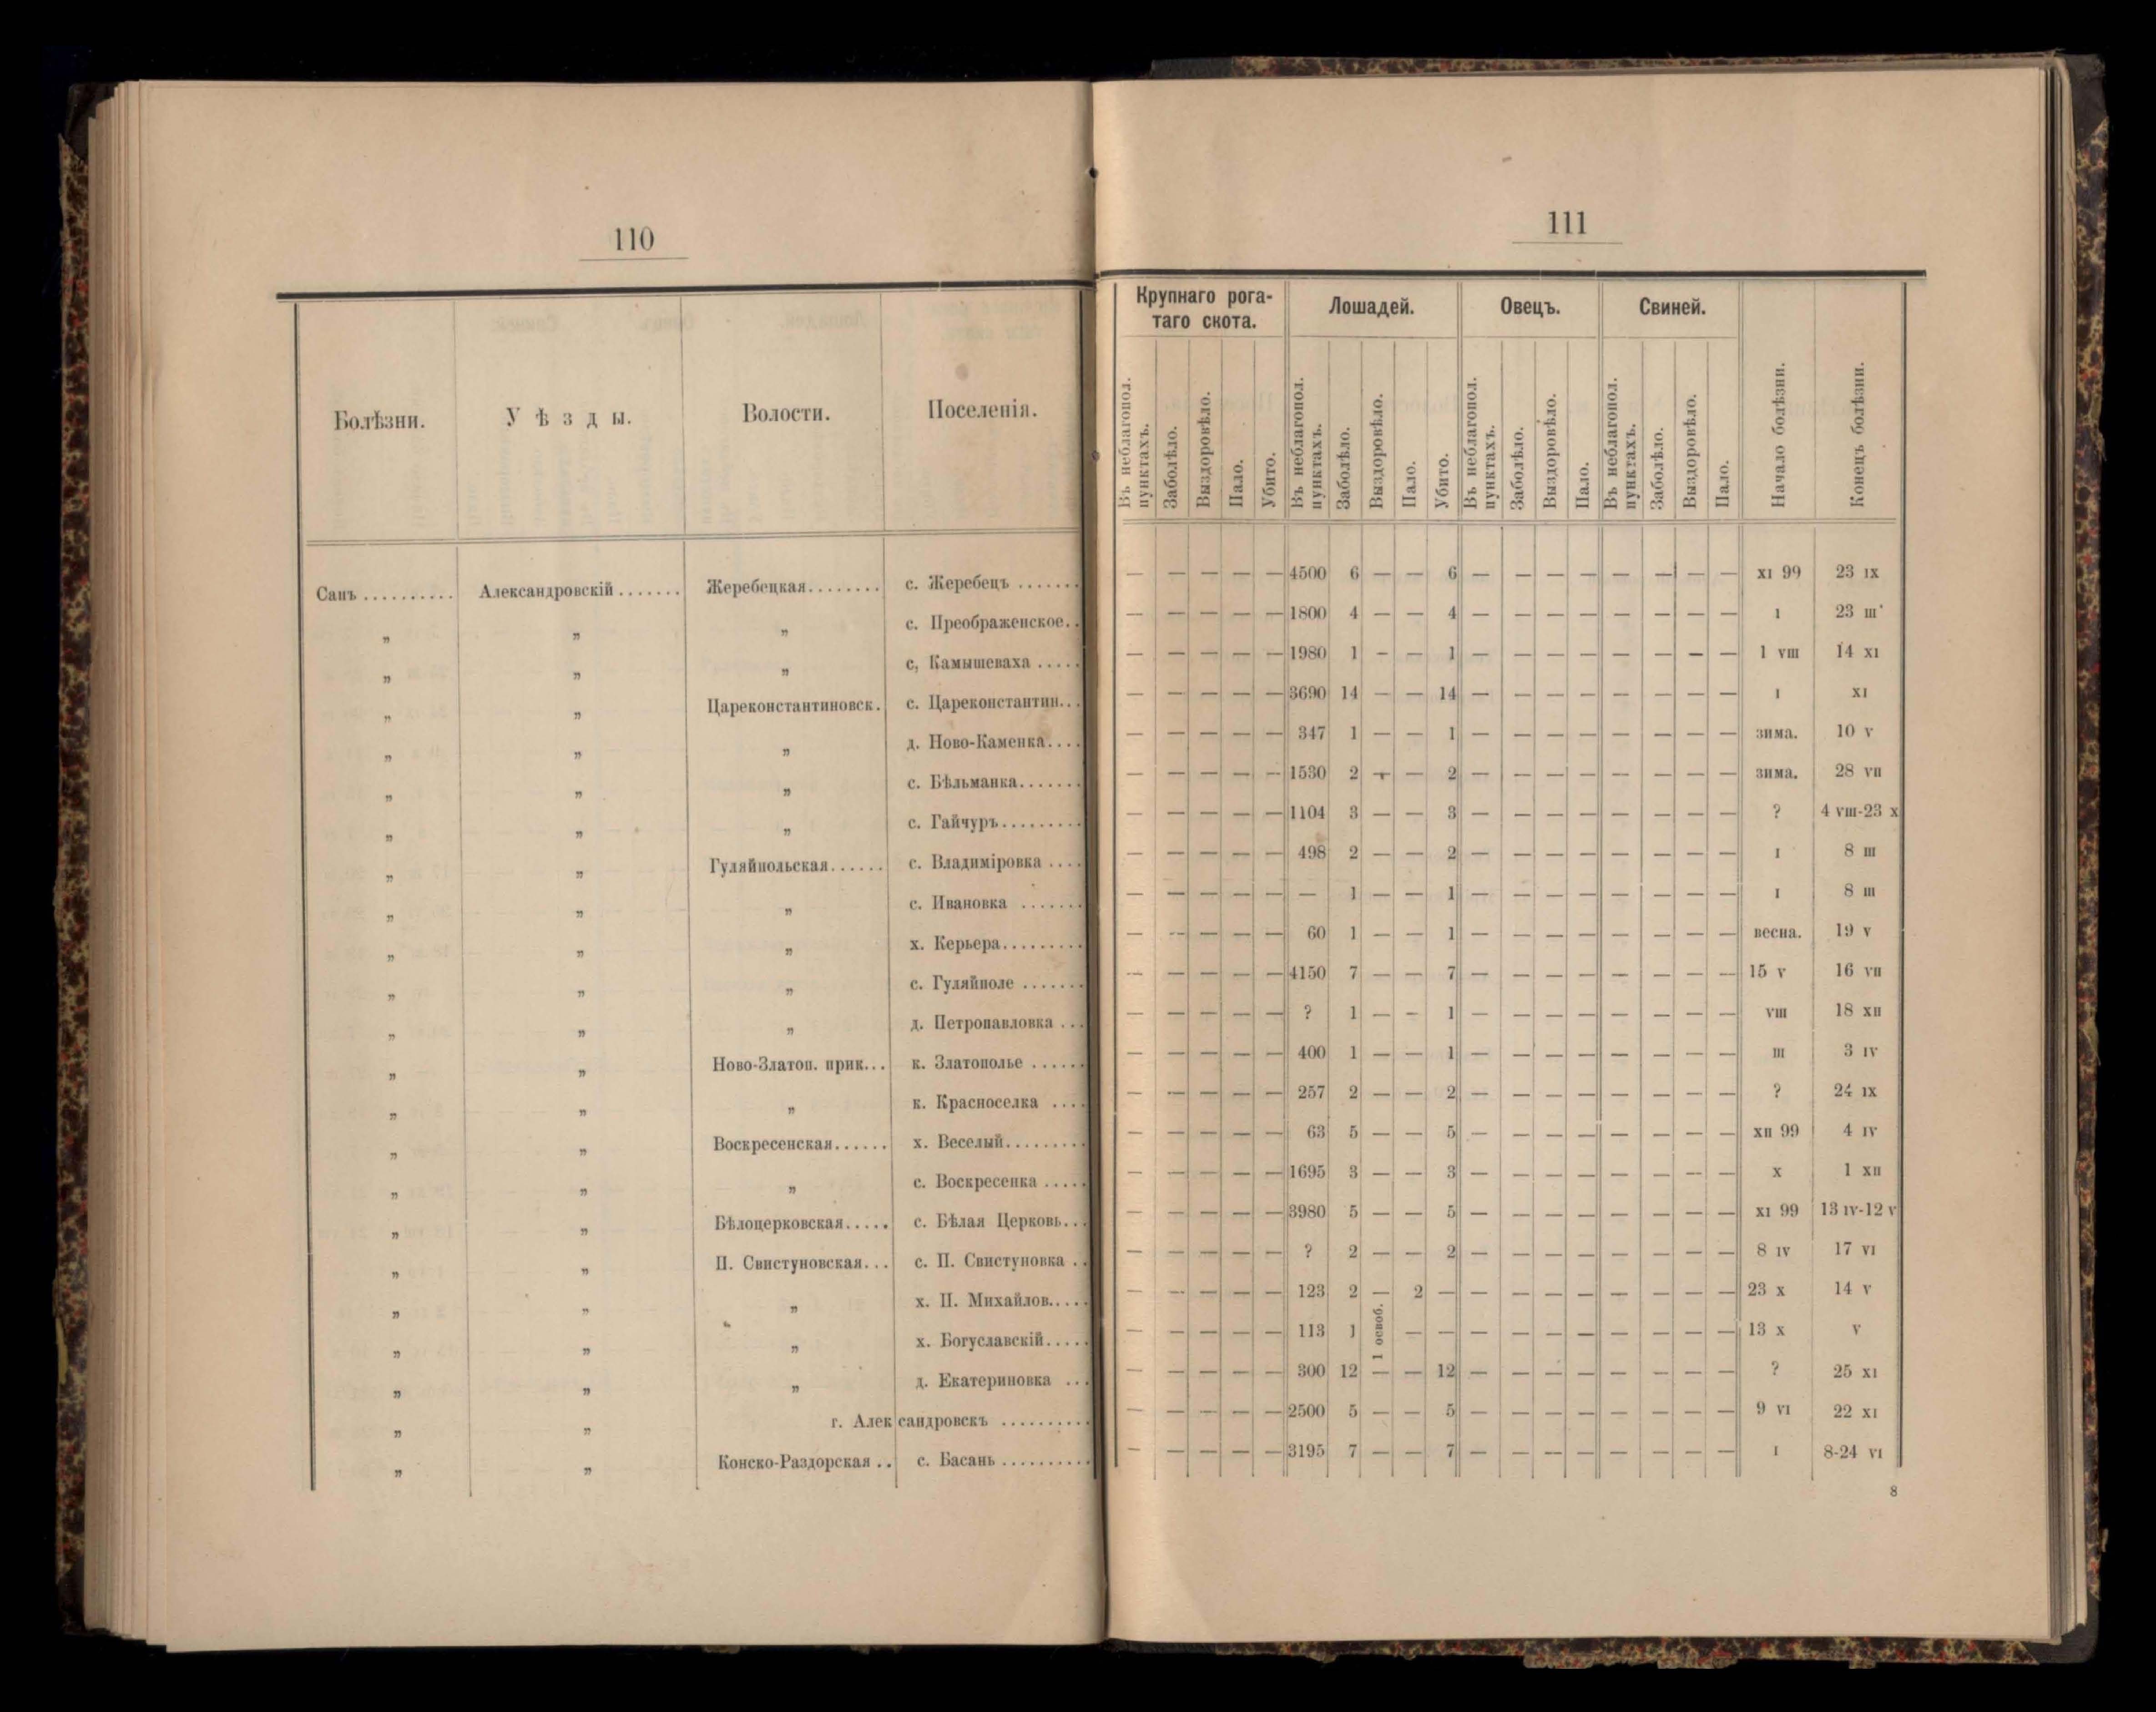 110
Болѣзни. Уѣзды. Волости. Поселенія.
Сапъ .......... Александровскій ....... Жеребецкая........ с. Жеребецъ .......
„ „ „ с. Преображенское..
„ „ „ с, Камышеваха .....
„ „ Цареконстантиновск. с. Цареконстантин...
„ „ „ д. Ново-Каменка....
„ „ „ с. Бѣльманка.......
„ „ „ с. Гайчуръ.........
„ „ Гуляйпольская...... с. Владиміровка ....
„ „ „ с. Ивановка .......
„ „ „ х. Керьера.........
„ „ „ с. Гуляйполе .......
„ „ „ д. Петропавловка ...
„ „ Ново-Златоп. прик... к. Златополье ......
„ „ „ к. Красноселка ....
„ „ Воскресенская...... х. Веселый.........
„ „ „ с. Воскресенка .....
„ „ Бѣлоцерковская..... с. Бѣлая Церковь...
„ „ П. Свистуновская... с. П. Свистуновка ..
„ „ „ х. П. Михайлов.....
„ „ „ х. Богуславскій.....
„ „ „ д. Екатериновка ...
„ „ г. Александровскъ ..........
„ „ Конско-Раздорская .. с. Басань ..........
111
Крупнаго рога-
таго скота. Лошадей. Овецъ. Свиней.
Въ неблагопол. пунктахъ. Заболѣло. Выздоровѣло. Пало. Убито. Въ неблагопол. пунктахъ. Заболѣло. Выздоровѣло. Пало. Убито. Въ неблагопол. пунктахъ. Заболѣло. Выздоровѣло. Пало. Въ неблагопол. пунктахъ. Заболѣло. Выздоровѣло. Пало. Начало болѣзни. Конецъ болѣзни.
— — — — — 4500 6 — — 6 — — — — — — — — XI 99 23 IX
— — — — — 1800 4 — — 4 — — — — — — — — I 23 III
— — — — — 1980 1 — — 1 — — — — — — — — 1 VIII 14 XI
— — — — — 3690 14 — — 14 — — — — — — — — I XI
— — — — — 347 1 — — 1 — — — — — — — — зима. 10 V
— — — — — 1530 2 — — 2 — — — — — — — — зима. 28 VII
— — — — — 1104 3 — — 3 — — — — — — — — ? 4 VIII-23 X
— — — — — 498 2 — — 2 — — — — — — — — I 8 III
— — — — — — 1 — — 1 — — — — — — — — I 8 III
— — — — — 60 1 — — 1 — — — — — — — — весна. 19 V
— — — — — 4150 7 — — 7 — — — — — — — — 15 V 16 VII
— — — — — ? 1 — — 1 — — — — — — — — VIII 18 XII
— — — — — 400 1 — — 1 — — — — — — — — III 3 IV
— — — — — 257 2 — — 2 — — — — — — — — ? 24 IX
— — — — — 63 5 — — 5 — — — — — — — — XII 99 4 IV
— — — — — 1695 3 — — 3 — — — — — — — — X 1 XII
— — — — — 3980 5 — — 5 — — — — — — — — XI 99 13 IV-12 V
— — — — — ? 2 — — 2 — — — — — — — — 8 IV 17 VI
— — — — — 123 2 — 2 — — — — — — — — — 23 X 14 V
— — — — — 113 1 1 освоб. — — — — — — — — — — 13 X V
— — — — — 300 12 — — 12 — — — — — — — — ? 25 XI
— — — — — 2500 5 — — 5 — — — — — — — — 9 VI 22 XI
— — — — — 3195 7 — — 7 — — — — — — — — I 8-24 VI
8